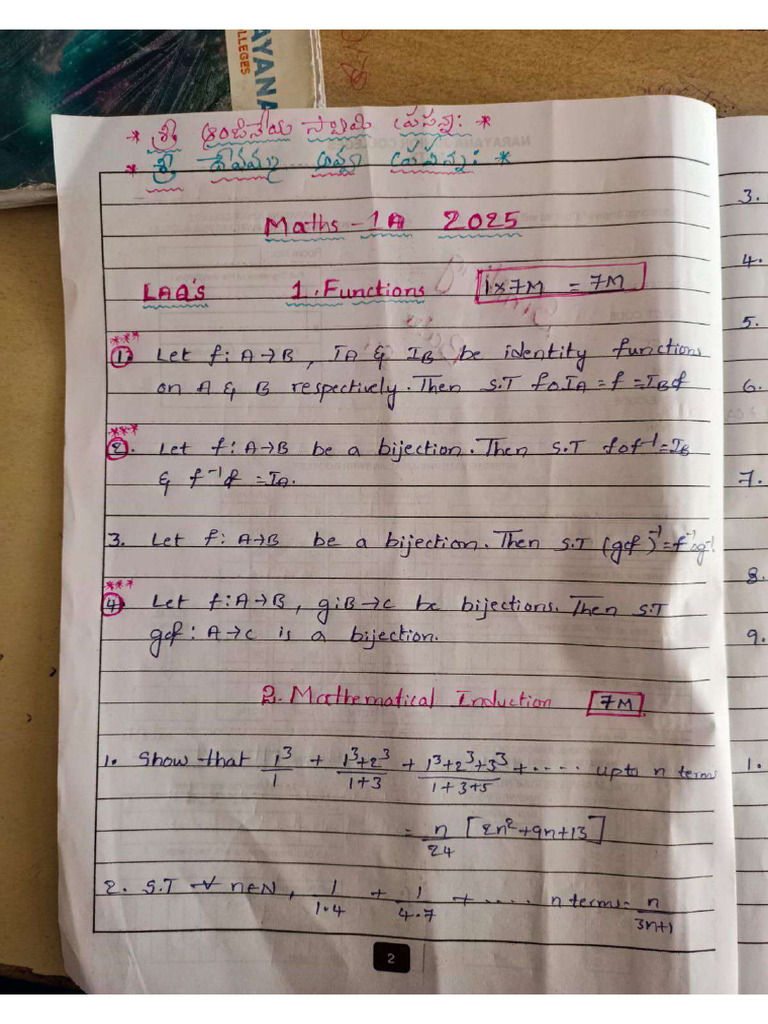 AYANA
LLEGES
* శ్రీ ఆంజనేయ స్వామి ప్రసన్న: *
* శ్రీ ... ప్రసన్న: *
Maths - 1A 2025
LAQ's 1. Functions 1x7M = 7M
***
1. Let f: A→B, IA & IB be identity functions
on A & B respectively. Then S.T foIA = f = IBof
***
2. Let f: A→B be a bijection. Then S.T fof⁻¹ = IB
& f⁻¹of = IA.
3. Let f: A→B be a bijection. Then S.T (gof)⁻¹ = f⁻¹og⁻¹
***
4. Let f: A→B, g: B→C be bijections. Then S.T
gof: A→C is a bijection.
2. Mathematical Induction 7M
1. Show that 1³/1 + 1³+2³/1+3 + 1³+2³+3³/1+3+5 + ..... upto n terms
= n/24 [2n²+9n+13]
2. S.T ∀ n∈N, 1/1.4 + 1/4.7 + ..... n terms = n/3n+1
2
3.
4.
5.
6.
7.
8.
9.
1.